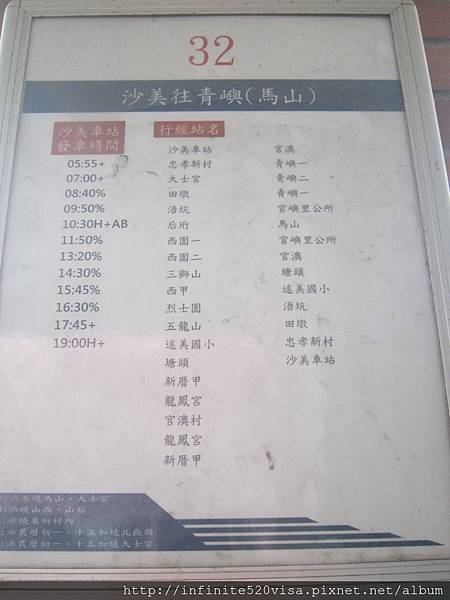 32
沙美往青嶼(馬山)
沙美車站
發車時間
05:55+
07:00+
08:40%
09:50%
10:30H+AB
11:50%
13:20%
14:30%
15:45%
16:30%
17:45+
19:00H+
行經站名
沙美車站
忠孝新村
大士宮
田墩
浯坑
后珩
西園一
西園二
三獅山
西甲
烈士園
五龍山
述美國小
塘頭
新厝甲
龍鳳宮
官澳村
龍鳳宮
新厝甲
官澳
青嶼一
青嶼二
青嶼一
官嶼里公所
馬山
官嶼里公所
官澳
塘頭
述美國小
浯坑
田墩
忠孝新村
沙美車站
示不繞馬山、大士宮
示繞山西、山后
示繞東珩村內
示農曆初一、十五加繞北嶽廟
示農曆初一、十五加繞大士宮
http://infinite520visa.pixnet.net/album